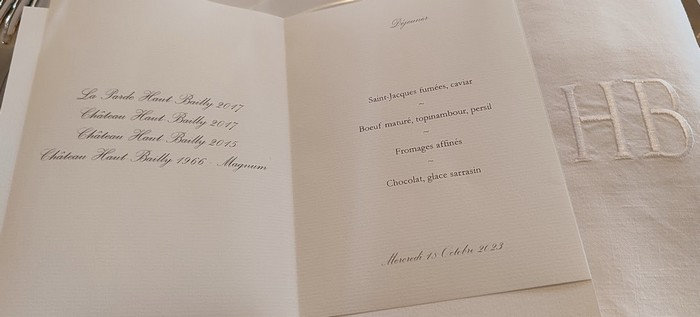 La Parde Haut Bailly 2017
Château Haut Bailly 2017
Château Haut Bailly 2015
Château Haut Bailly 1966 - Magnum
Déjeuner
Saint-Jacques fumées, caviar
~
Boeuf maturé, topinambour, persil
~
Fromages affinés
~
Chocolat, glace sarrasin
Mercredi 18 Octobre 2023
HB